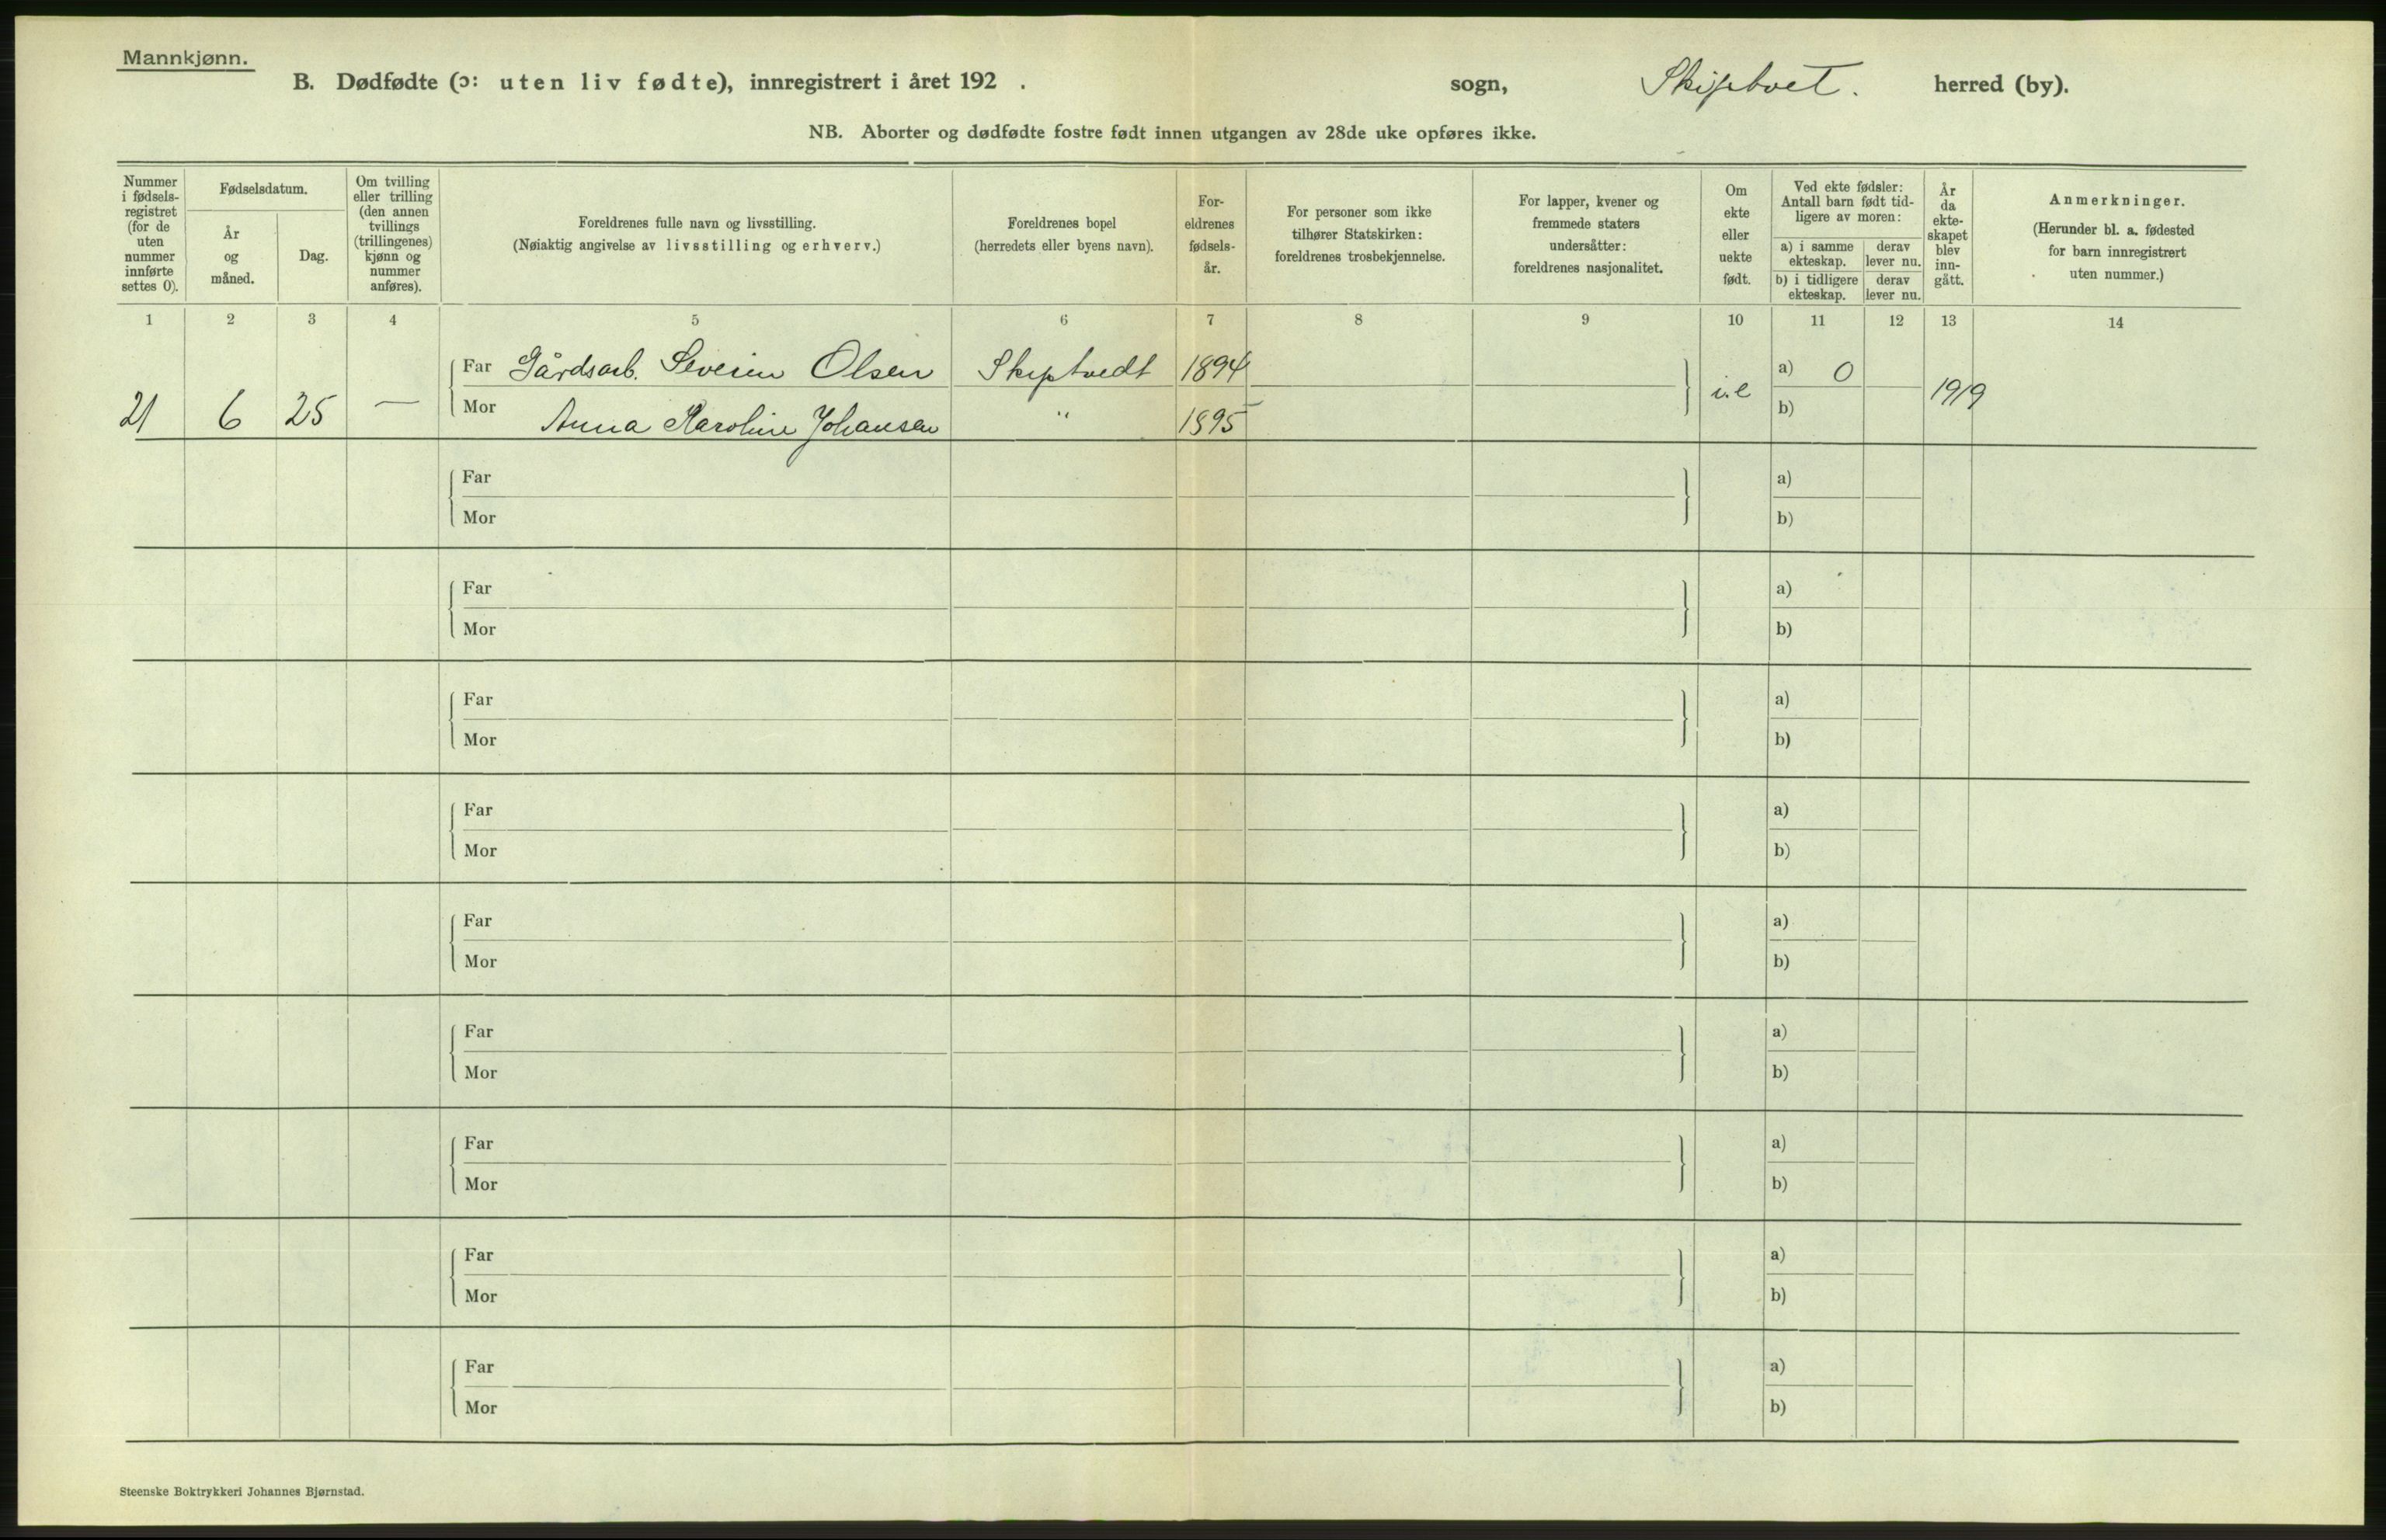 Mannkjønn.
B. Dødfødte (ɔ: uten liv fødte), innregistrert i året 192 . sogn, Skiptvet. herred (by).
NB. Aborter og dødfødte fostre født innen utgangen av 28de uke opføres ikke.
Nummer i fødsels-registret (for de uten nummer innførte settes 0).
Fødselsdatum.
År og måned.
Dag.
Om tvilling eller trilling (den annen tvillings (trillingenes) kjønn og nummer anføres).
Foreldrenes fulle navn og livsstilling.
(Nøiaktig angivelse av livsstilling og erhverv.)
Foreldrenes bopel
(herredets eller byens navn).
For-eldrenes fødsels-år.
For personer som ikke tilhører Statskirken: foreldrenes trosbekjennelse.
For lapper, kvener og fremmede staters undersåtter: foreldrenes nasjonalitet.
Om ekte eller uekte født.
Ved ekte fødsler: Antall barn født tid-ligere av moren:
a) i samme ekteskap.
derav lever nu.
b) i tidligere ekteskap.
derav lever nu.
År da ekte-skapet blev inn-gått.
Anmerkninger.
(Herunder bl. a. fødested for barn innregistrert uten nummer.)
1 2 3 4 5 6 7 8 9 10 11 12 13 14
Far Gårdsarb. Severin Olsen Skiptvedt 1894 a) 0
21 6 25 — i.e 1919
Mor Anna Karoline Johansen " 1895 b)
Far a)
Mor b)
Far a)
Mor b)
Far a)
Mor b)
Far a)
Mor b)
Far a)
Mor b)
Far a)
Mor b)
Far a)
Mor b)
Far a)
Mor b)
Far a)
Mor b)
Steenske Boktrykkeri Johannes Bjørnstad.